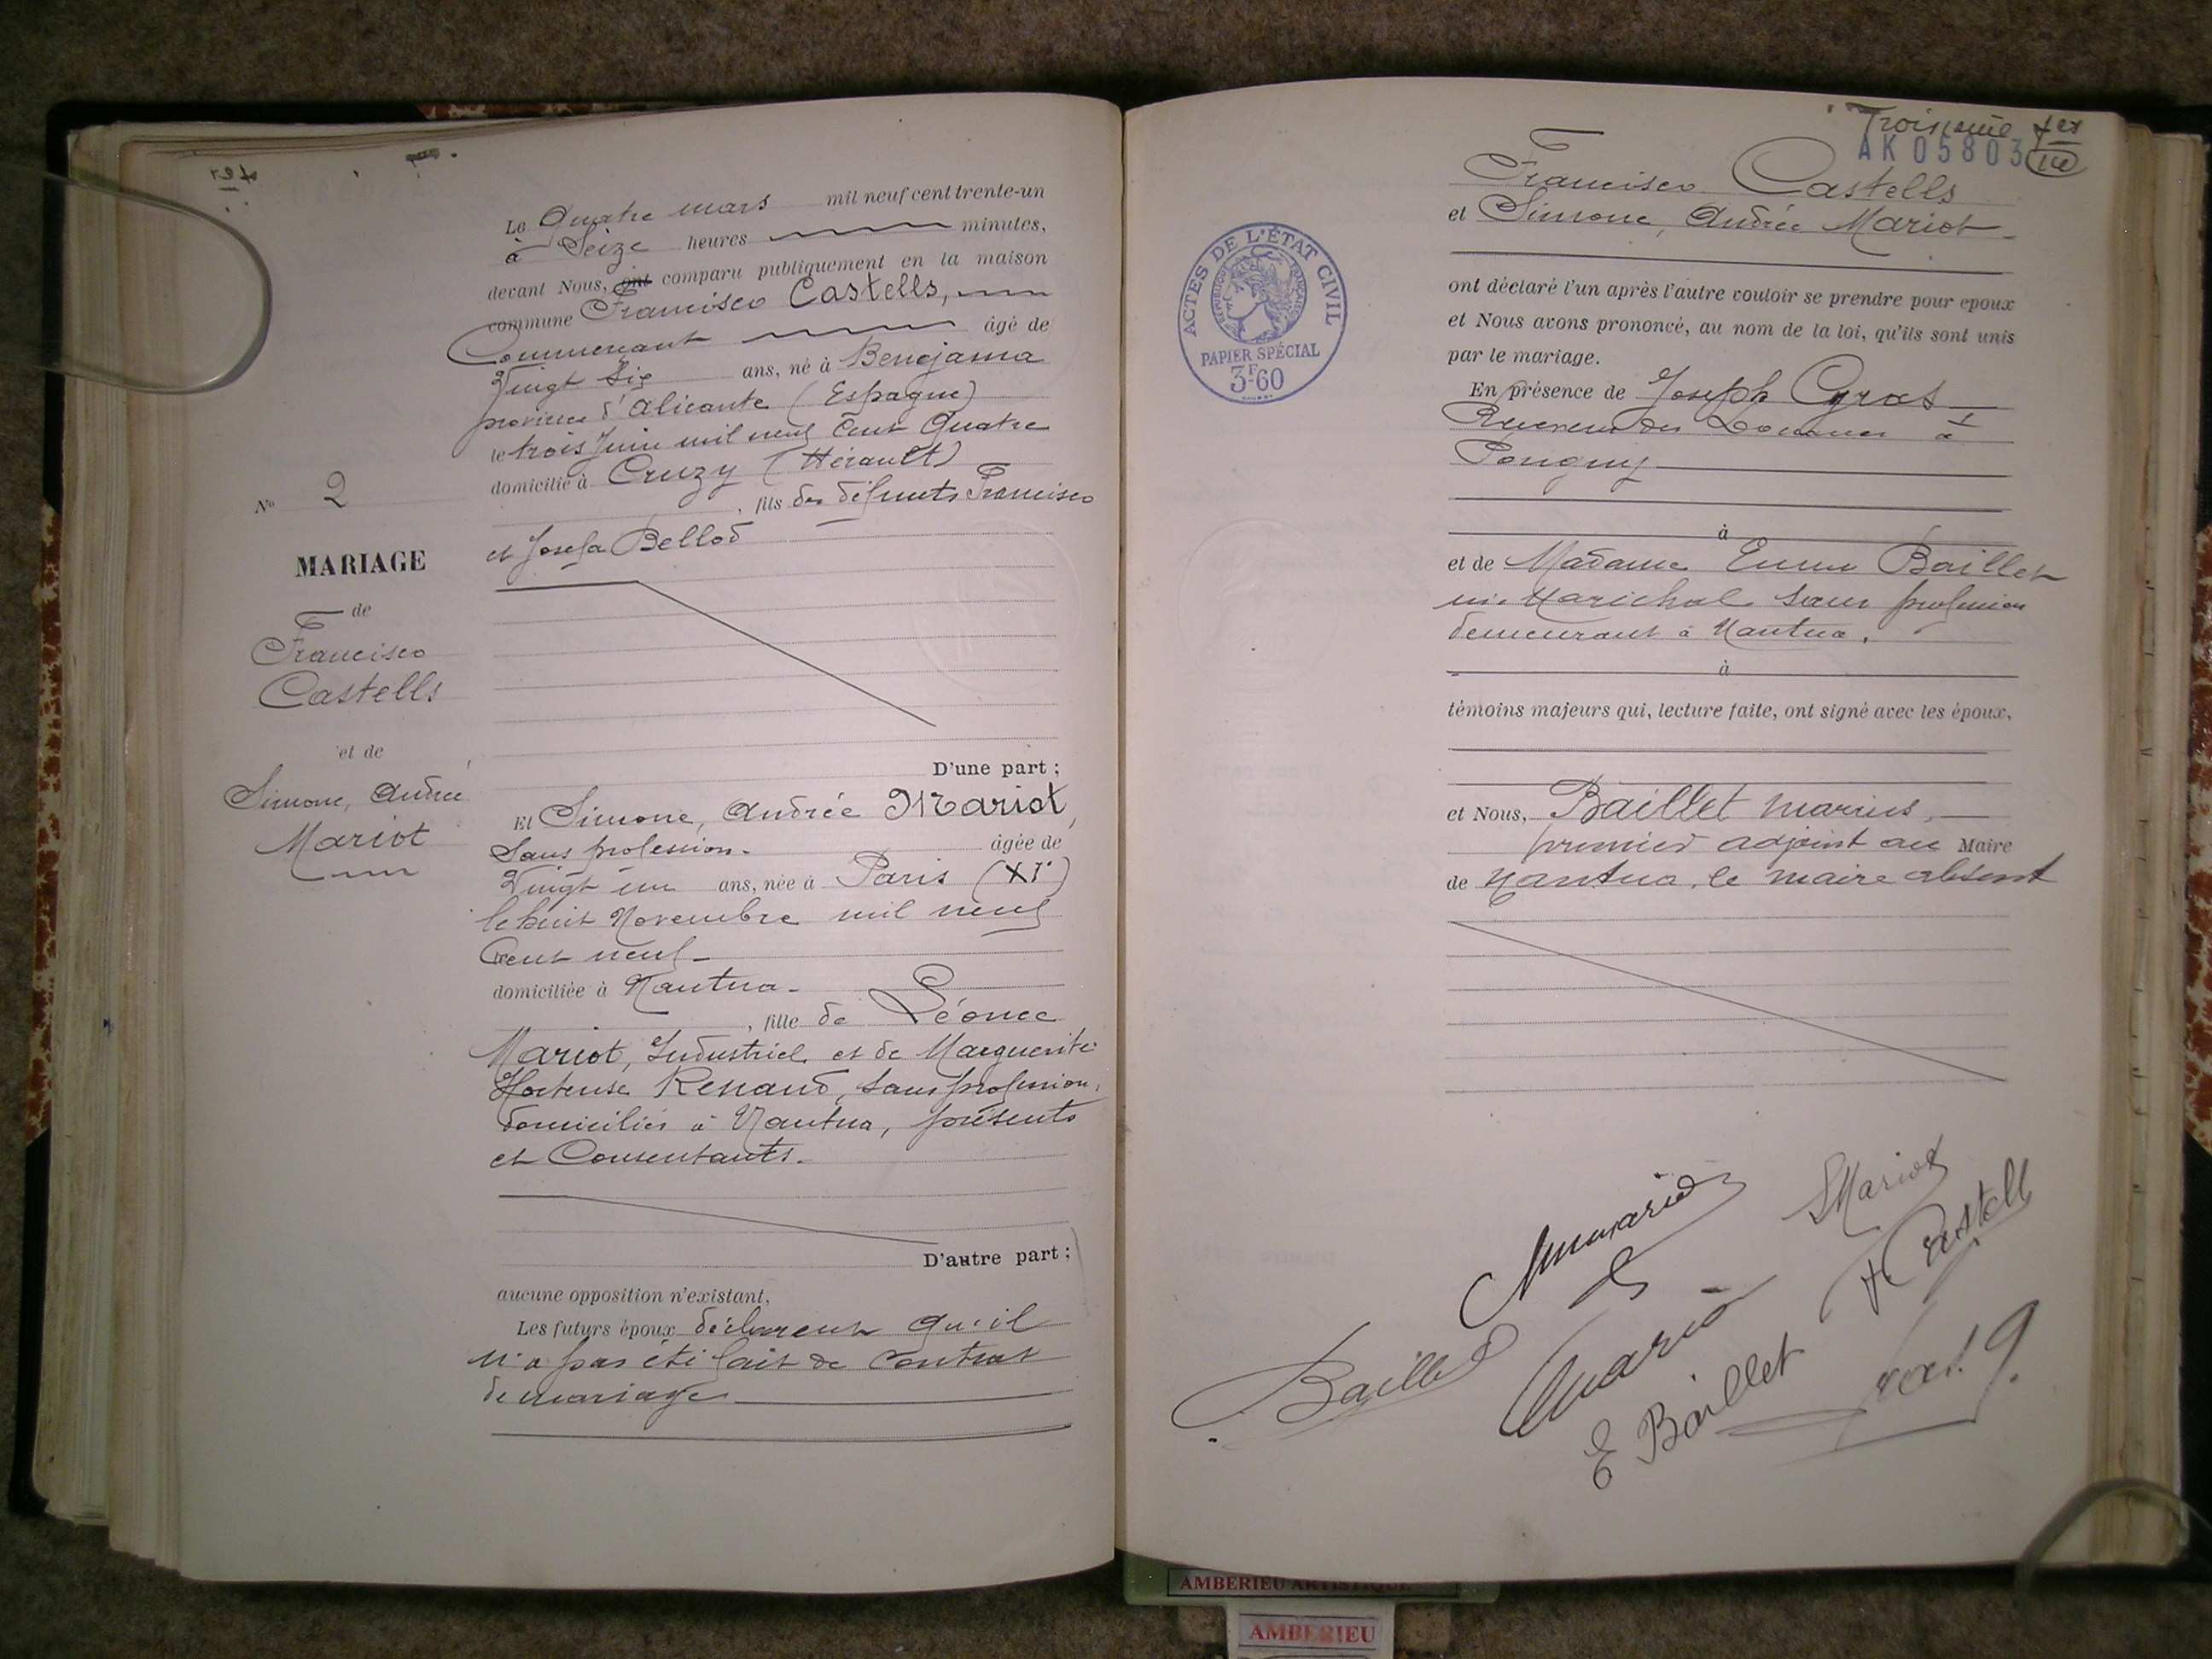 Le Quatre mars mil neuf cent trente-un
à Seize heures minutes,
devant Nous, ont comparu publiquement en la maison
commune Francisco Castells,
Commerçant âgé de
Vingt six ans, né à Benejama
province d'Alicante (Espagne)
le trois Juin mil neuf Cent Quatre
domicilié à Cruzy (Hérault)
, fils des défunts Francisco
et Josefa Bellod
No 2
MARIAGE
de
Francisco
Castells
et de
Simone, Andrée
Mariot
D'une part ;
Et Simone, Andrée Mariot,
Sans profession. âgée de
Vingt un ans, née à Paris (XIe)
le huit Novembre mil neuf
Cent neuf
domiciliée à Nantua
, fille de Léonce
Mariot, Industriel et de Marguerite
Hortense Renaud, sans profession,
domiciliés à Nantua, présents
et Consentants.
D'autre part ;
aucune opposition n'existant,
Les futurs époux déclarent qu'il
n'a pas été fait de Contrat
de mariage
Troisième ter
AK 05803
Francisco Castells
et Simone, Andrée Mariot
ACTES DE L'ÉTAT CIVIL
RÉPUBLIQUE FRANÇAISE
PAPIER SPÉCIAL
3F60
ont déclaré l'un après l'autre vouloir se prendre pour époux
et Nous avons prononcé, au nom de la loi, qu'ils sont unis
par le mariage.
En présence de Joseph
Receveur des Douanes à
Pougny
à
et de Madame Emma Baillet
née Maréchal sans profession
demeurant à Nantua.
à
témoins majeurs qui, lecture faite, ont signé avec les époux,
et Nous, Baillet Marius,
premier adjoint au Maire
de Nantua, le maire absent
SMariot
F Castells
Baillet
Mariot
E Baillet
AMBERIEU ARTISTIQUE
AMBERIEU